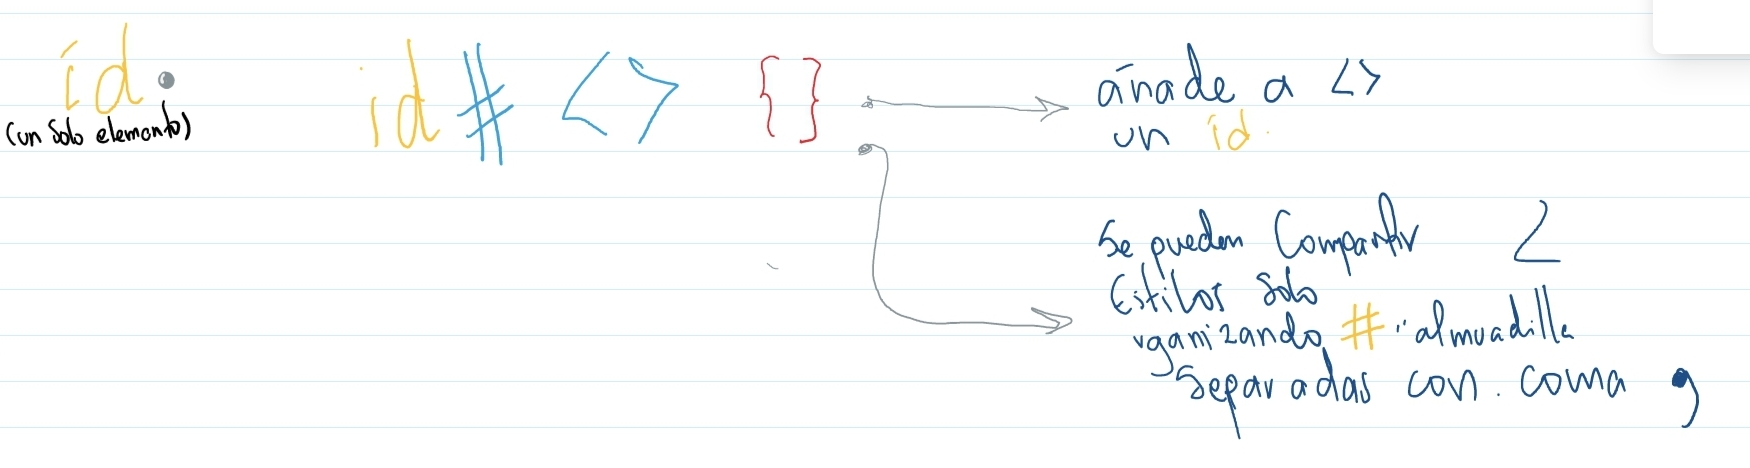 id.
(un solo elemento)
id # <> { }
añade a <>
un id.
Se pueden Compartir
Estilos solo
# "almuadilla
Separadas con. coma ,